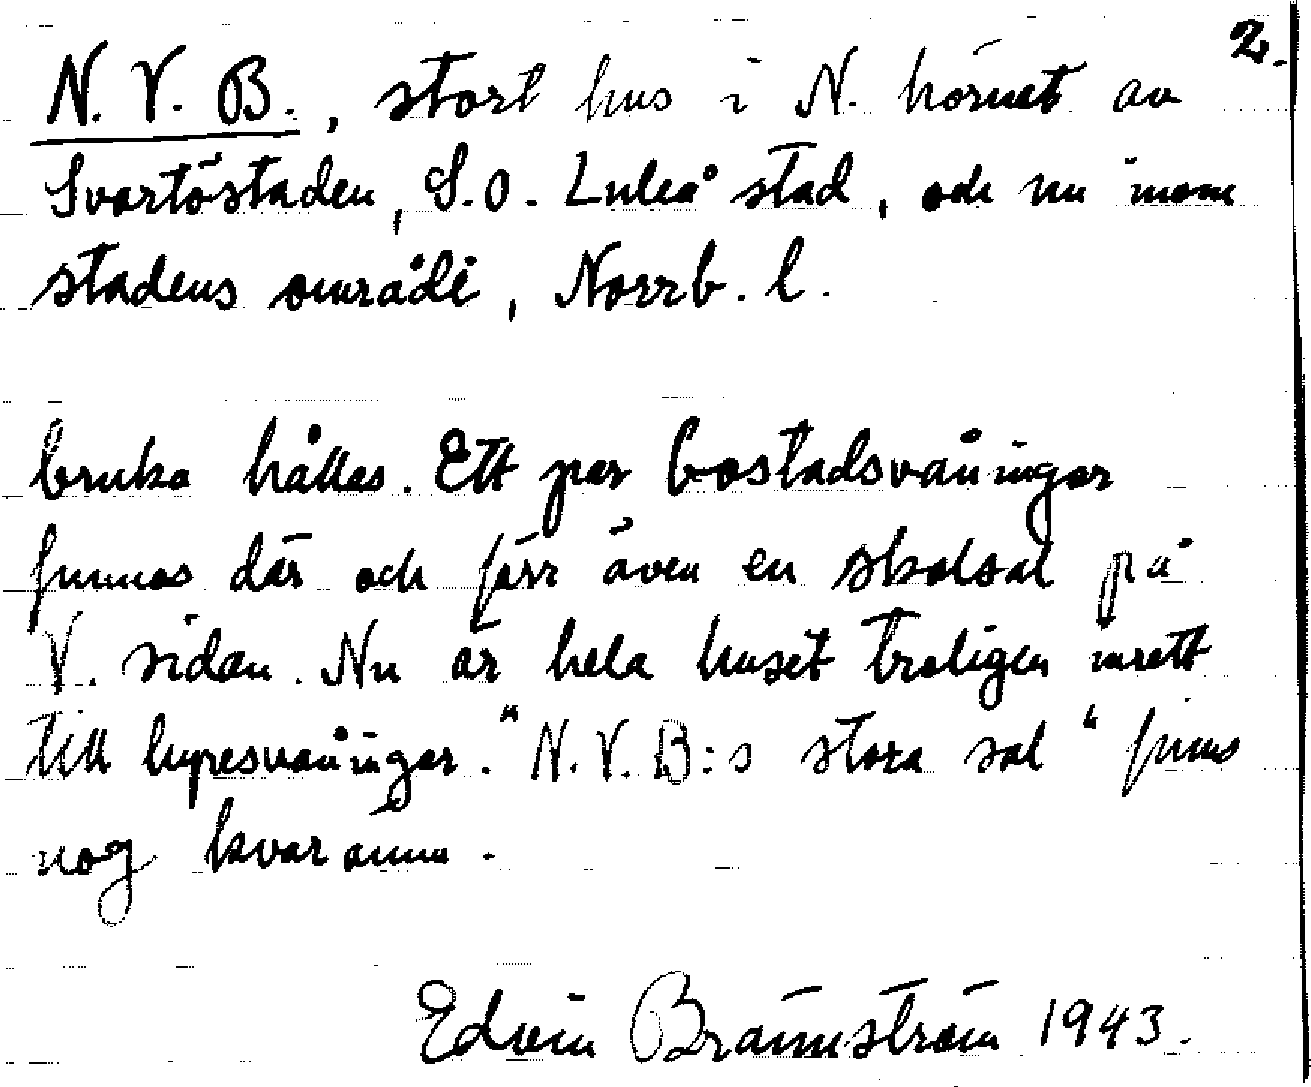 2.
N. V. B., stort hus i N. hörnet av
Svartöstaden, S.O. Luleå stad, och nu inom
stadens område, Norrb. l.
bruka hållas. Ett par bostadsvåningar
funnos där och förr även en skolsal på
V. sidan. Nu är hela huset troligen inrett
till hyresvåningar. "N.V.B:s stora sal" finns
nog kvar ännu.
Edvin Brännström 1943.